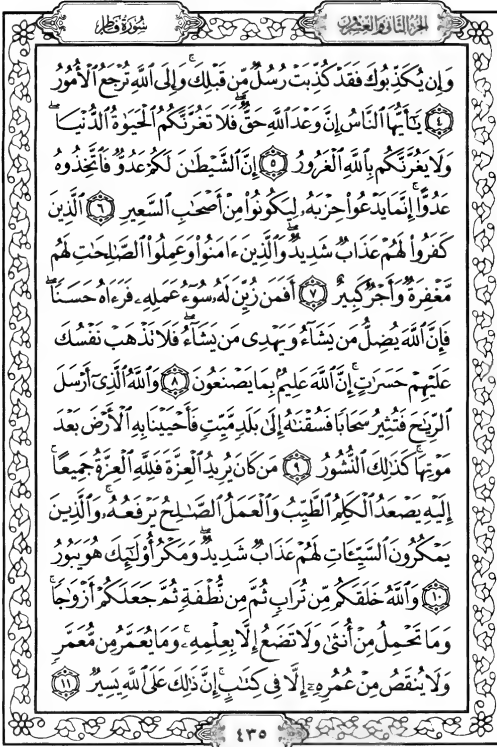 سُورَةُ فَاطِرٍ الجُزْءُ الثَّانِي وَالعِشْرُونَ
وَإِن يُكَذِّبُوكَ فَقَدْ كُذِّبَتْ رُسُلٌ مِّن قَبْلِكَ ۚ وَإِلَى اللَّهِ تُرْجَعُ الْأُمُورُ
﴿٤﴾ يَا أَيُّهَا النَّاسُ إِنَّ وَعْدَ اللَّهِ حَقٌّ ۖ فَلَا تَغُرَّنَّكُمُ الْحَيَوٰةُ الدُّنْيَا ۖ
وَلَا يَغُرَّنَّكُم بِاللَّهِ الْغَرُورُ ﴿٥﴾ إِنَّ الشَّيْطَٰنَ لَكُمْ عَدُوٌّ فَاتَّخِذُوهُ
عَدُوًّا ۚ إِنَّمَا يَدْعُوا۟ حِزْبَهُۥ لِيَكُونُوا۟ مِنْ أَصْحَٰبِ السَّعِيرِ ﴿٦﴾ الَّذِينَ
كَفَرُوا۟ لَهُمْ عَذَابٌ شَدِيدٌ ۖ وَالَّذِينَ ءَامَنُوا۟ وَعَمِلُوا۟ الصَّٰلِحَٰتِ لَهُم
مَّغْفِرَةٌ وَأَجْرٌ كَبِيرٌ ﴿٧﴾ أَفَمَن زُيِّنَ لَهُۥ سُوٓءُ عَمَلِهِۦ فَرَءَاهُ حَسَنًا ۖ
فَإِنَّ اللَّهَ يُضِلُّ مَن يَشَآءُ وَيَهْدِى مَن يَشَآءُ ۖ فَلَا تَذْهَبْ نَفْسُكَ
عَلَيْهِمْ حَسَرَٰتٍ ۚ إِنَّ اللَّهَ عَلِيمٌۢ بِمَا يَصْنَعُونَ ﴿٨﴾ وَاللَّهُ الَّذِىٓ أَرْسَلَ
الرِّيَٰحَ فَتُثِيرُ سَحَابًا فَسُقْنَٰهُ إِلَىٰ بَلَدٍ مَّيِّتٍ فَأَحْيَيْنَا بِهِ الْأَرْضَ بَعْدَ
مَوْتِهَا ۚ كَذَٰلِكَ النُّشُورُ ﴿٩﴾ مَن كَانَ يُرِيدُ الْعِزَّةَ فَلِلَّهِ الْعِزَّةُ جَمِيعًا ۚ
إِلَيْهِ يَصْعَدُ الْكَلِمُ الطَّيِّبُ وَالْعَمَلُ الصَّٰلِحُ يَرْفَعُهُۥ ۚ وَالَّذِينَ
يَمْكُرُونَ السَّيِّـَٔاتِ لَهُمْ عَذَابٌ شَدِيدٌ ۖ وَمَكْرُ أُو۟لَٰٓئِكَ هُوَ يَبُورُ
﴿١٠﴾ وَاللَّهُ خَلَقَكُم مِّن تُرَابٍ ثُمَّ مِن نُّطْفَةٍ ثُمَّ جَعَلَكُمْ أَزْوَٰجًا ۚ
وَمَا تَحْمِلُ مِنْ أُنثَىٰ وَلَا تَضَعُ إِلَّا بِعِلْمِهِۦ ۚ وَمَا يُعَمَّرُ مِن مُّعَمَّرٍ
وَلَا يُنقَصُ مِنْ عُمُرِهِۦٓ إِلَّا فِى كِتَٰبٍ ۚ إِنَّ ذَٰلِكَ عَلَى اللَّهِ يَسِيرٌ ﴿١١﴾
٤٣٥